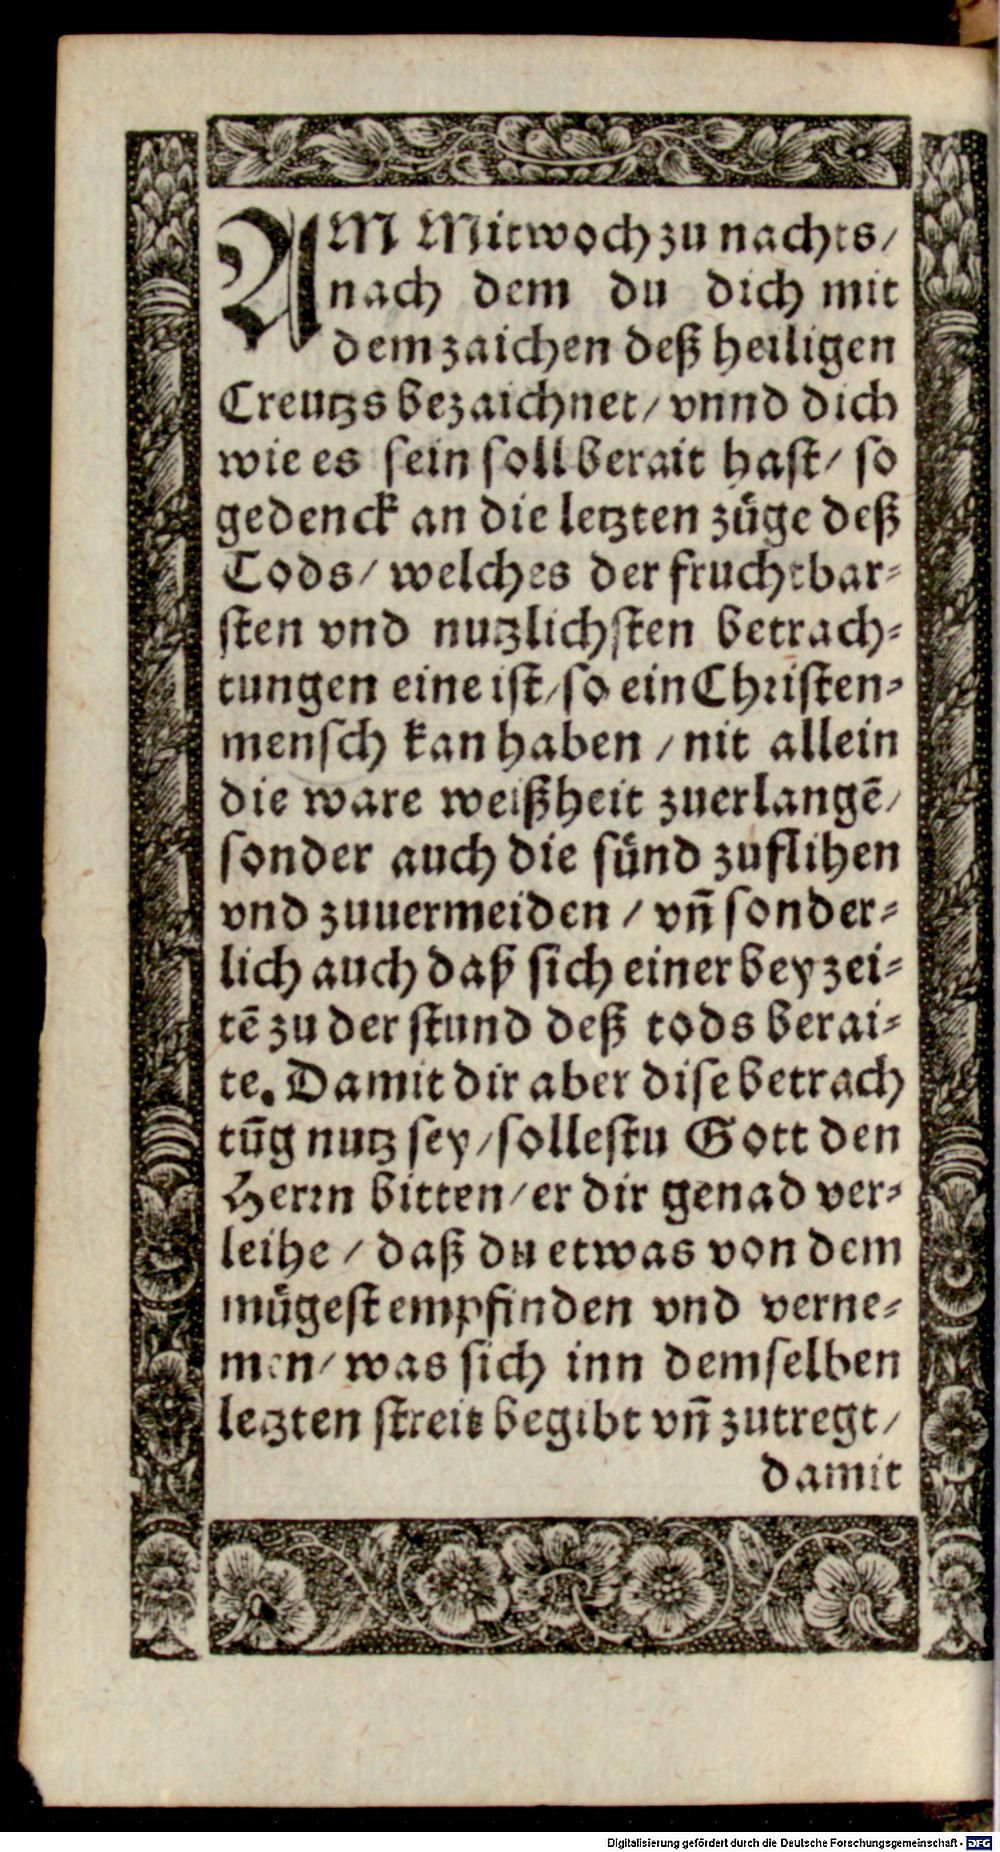 AM Mitwoch zu nachts/
nach dem du dich mit
dem zaichen deß heiligen
Creutzs bezaichnet/ vnnd dich
wie es sein soll berait hast/ so
gedenck an die letzten züge deß
Tods/ welches der fruchtbar⸗
sten vnd nutzlichsten betrach⸗
tungen eine ist/ so ein Christen⸗
mensch kan haben / nit allein
die ware weißheit zuerlangē/
sonder auch die sünd zuflihen
vnd zuuermeiden / vñ sonder⸗
lich auch daß sich einer bey zei⸗
tē zu der stund deß tods berai⸗
te. Damit dir aber dise betrach
tūg nutz sey/ sollestu Gott den
Herrn bitten/ er dir genad ver⸗
leihe / daß du etwas von dem
mügest empfinden vnd verne⸗
men/ was sich inn demselben
letzten streit begibt vñ zutregt/
damit
Digitalisierung gefördert durch die Deutsche Forschungsgemeinschaft - DFG